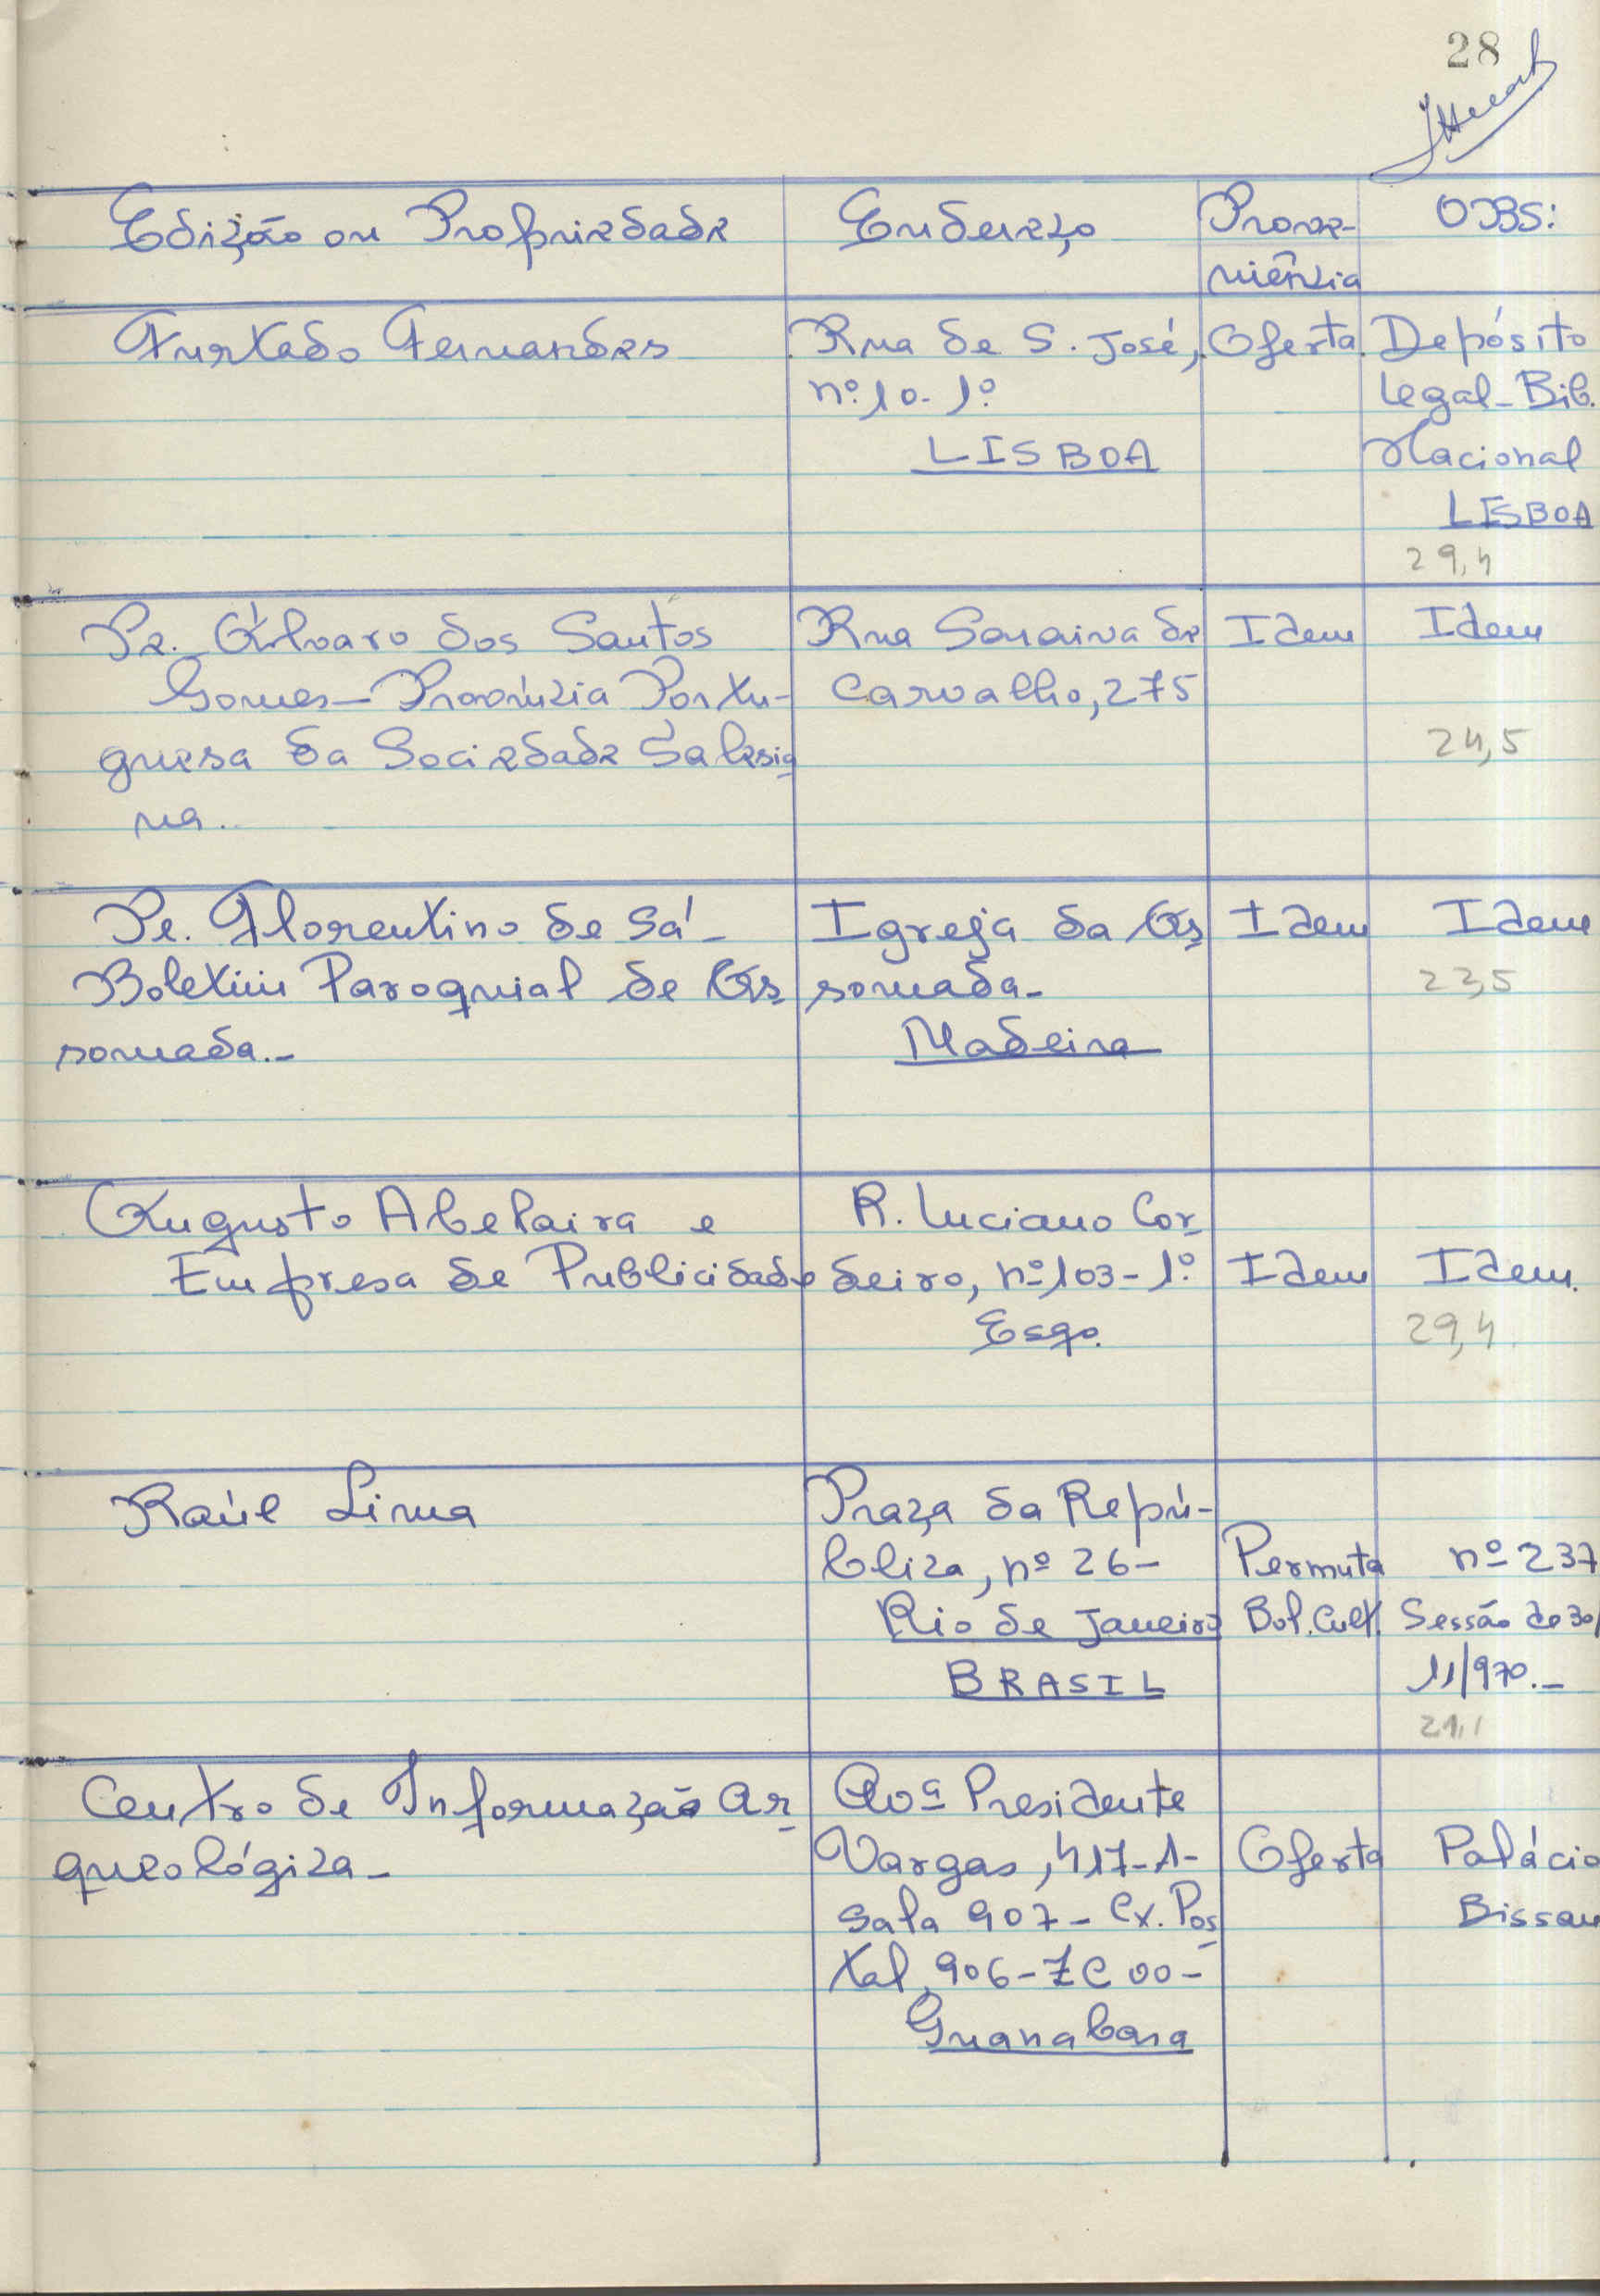 28
Edição ou Propriedade Endereço Prove- OBS:
niência
Furtado Fernandes
Rua de S. José,
nº 10 - 1º
LISBOA
Oferta
Depósito
Legal - Bib.
Nacional
LISBOA
29,4
Pe. Álvaro dos Santos
Gomes - Província Portu-
guesa da Sociedade Salesia
na.
Rua Saraiva de
Carvalho, 275
Idem
Idem
24,5
Pe. Florentino de Sá -
Boletim Paroquial de As
somada. -
Igreja da As
somada -
Madeira
Idem
Idem
23,5
Augusto Abelaira e
Empresa de Publicidade
R. Luciano Cor
deiro, nº 103 - 1º
Esqº.
Idem
Idem.
29,4
Raúl Lima
Praça da Repú-
blica, nº 26 -
Rio de Janeiro
BRASIL
Permuta
Bol. Cult.
nº 237
Sessão de 30/
11/970. -
21,1
Centro de Informação Ar
queológica -
Avª Presidente
Vargas, 417-A-
sala 907 - Cx. Pos
tal, 906 - ZC 00 -
Guanabara
Oferta
Palácio
Bissau